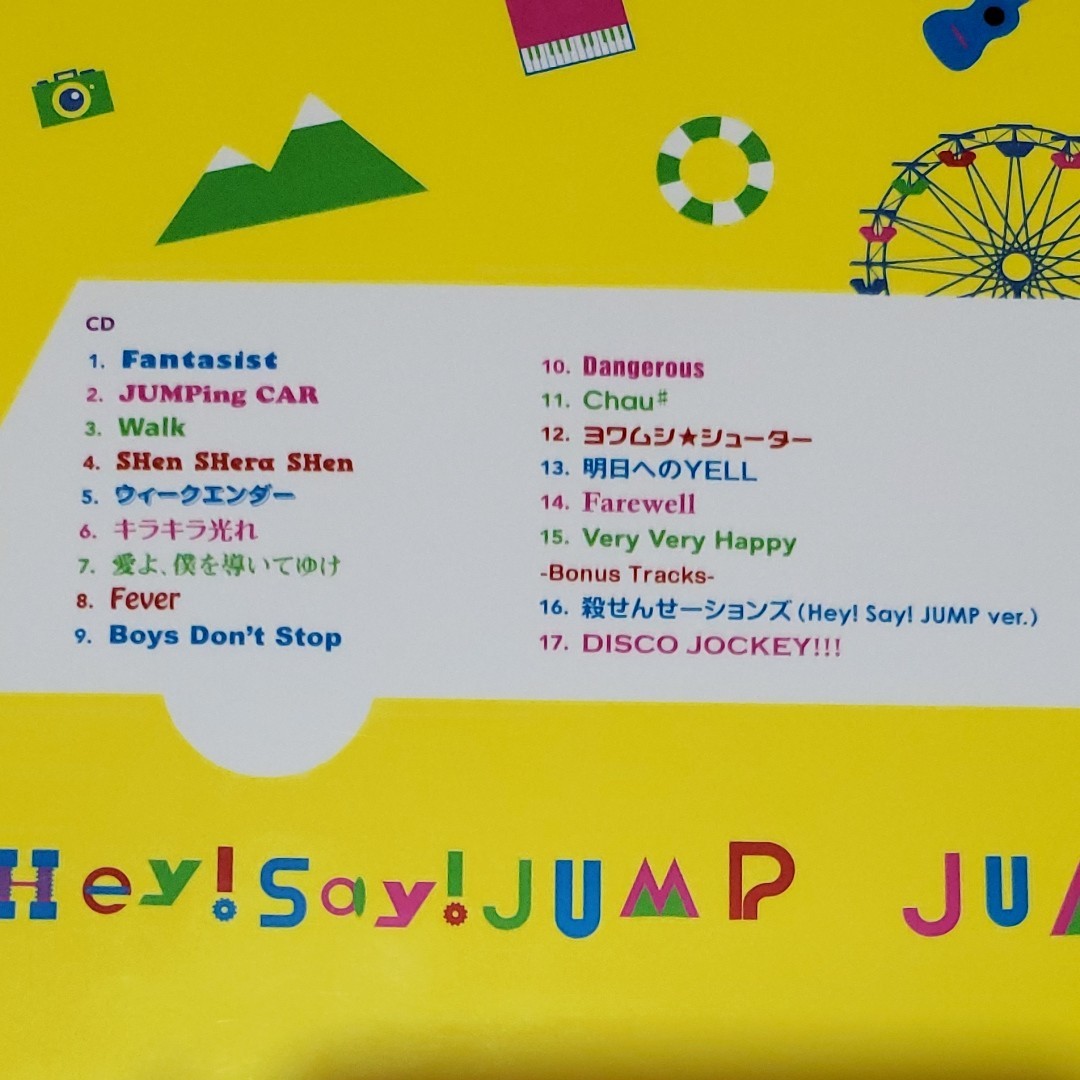 CD
1. Fantasist
2. JUMPing CAR
3. Walk
4. SHen SHera SHen
5. ウィークエンダー
6. キラキラ光れ
7. 愛よ、僕を導いてゆけ
8. Fever
9. Boys Don't Stop
10. Dangerous
11. Chau♯
12. ヨワムシ★シューター
13. 明日へのYELL
14. Farewell
15. Very Very Happy
-Bonus Tracks-
16. 殺せんせーションズ (Hey! Say! JUMP ver.)
17. DISCO JOCKEY!!!
Hey! Say! JUMP JU